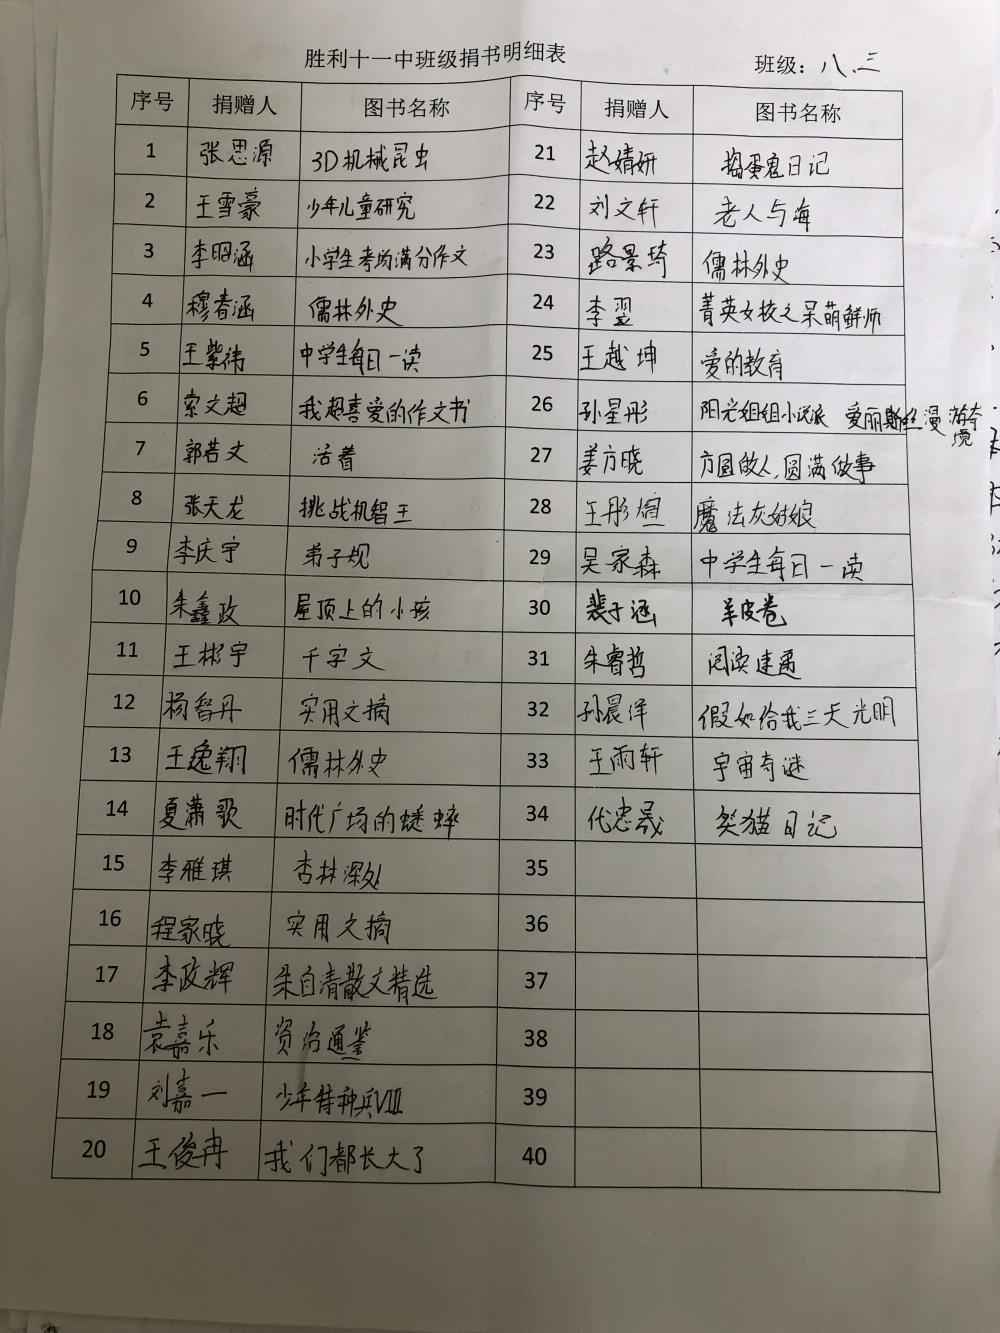 胜利十一中班级捐书明细表 班级：八.三
序号 捐赠人 图书名称 序号 捐赠人 图书名称
1 张思源 3D机械昆虫 21 赵婧妍 捣蛋鬼日记
2 王雪豪 少年儿童研究 22 刘文轩 老人与海
3 李昭涵 小学生考场满分作文 23 路景琦 儒林外史
4 穆春涵 儒林外史 24 李翌 菁英女校之呆萌鲜师
5 王紫祎 中学生每日一读 25 王越坤 爱的教育
6 索文超 我超喜爱的作文书 26 孙星彤 阳光姐姐小说派 爱丽斯丝漫游奇境
7 郭若文 活着 27 姜方晓 方圆做人,圆满做事
8 张天龙 挑战机智王 28 王彤煊 魔法灰姑娘
9 李庆宇 弟子规 29 吴家森 中学生每日一读
10 朱鑫政 屋顶上的小孩 30 裴子涵 羊皮卷
11 王彬宇 千字文 31 朱睿哲 阅读速递
12 杨智丹 实用文摘 32 孙晨洋 假如给我三天光明
13 王逸翔 儒林外史 33 王雨轩 宇宙奇谜
14 夏潇歌 时代广场的蟋蟀 34 代忠晟 笑猫日记
15 李雅琪 杏林深处 35
16 程家晓 实用文摘 36
17 李政辉 朱自清散文精选 37
18 袁嘉乐 资治通鉴 38
19 刘嘉一 少年特种兵VIII 39
20 王俊冉 我们都长大了 40